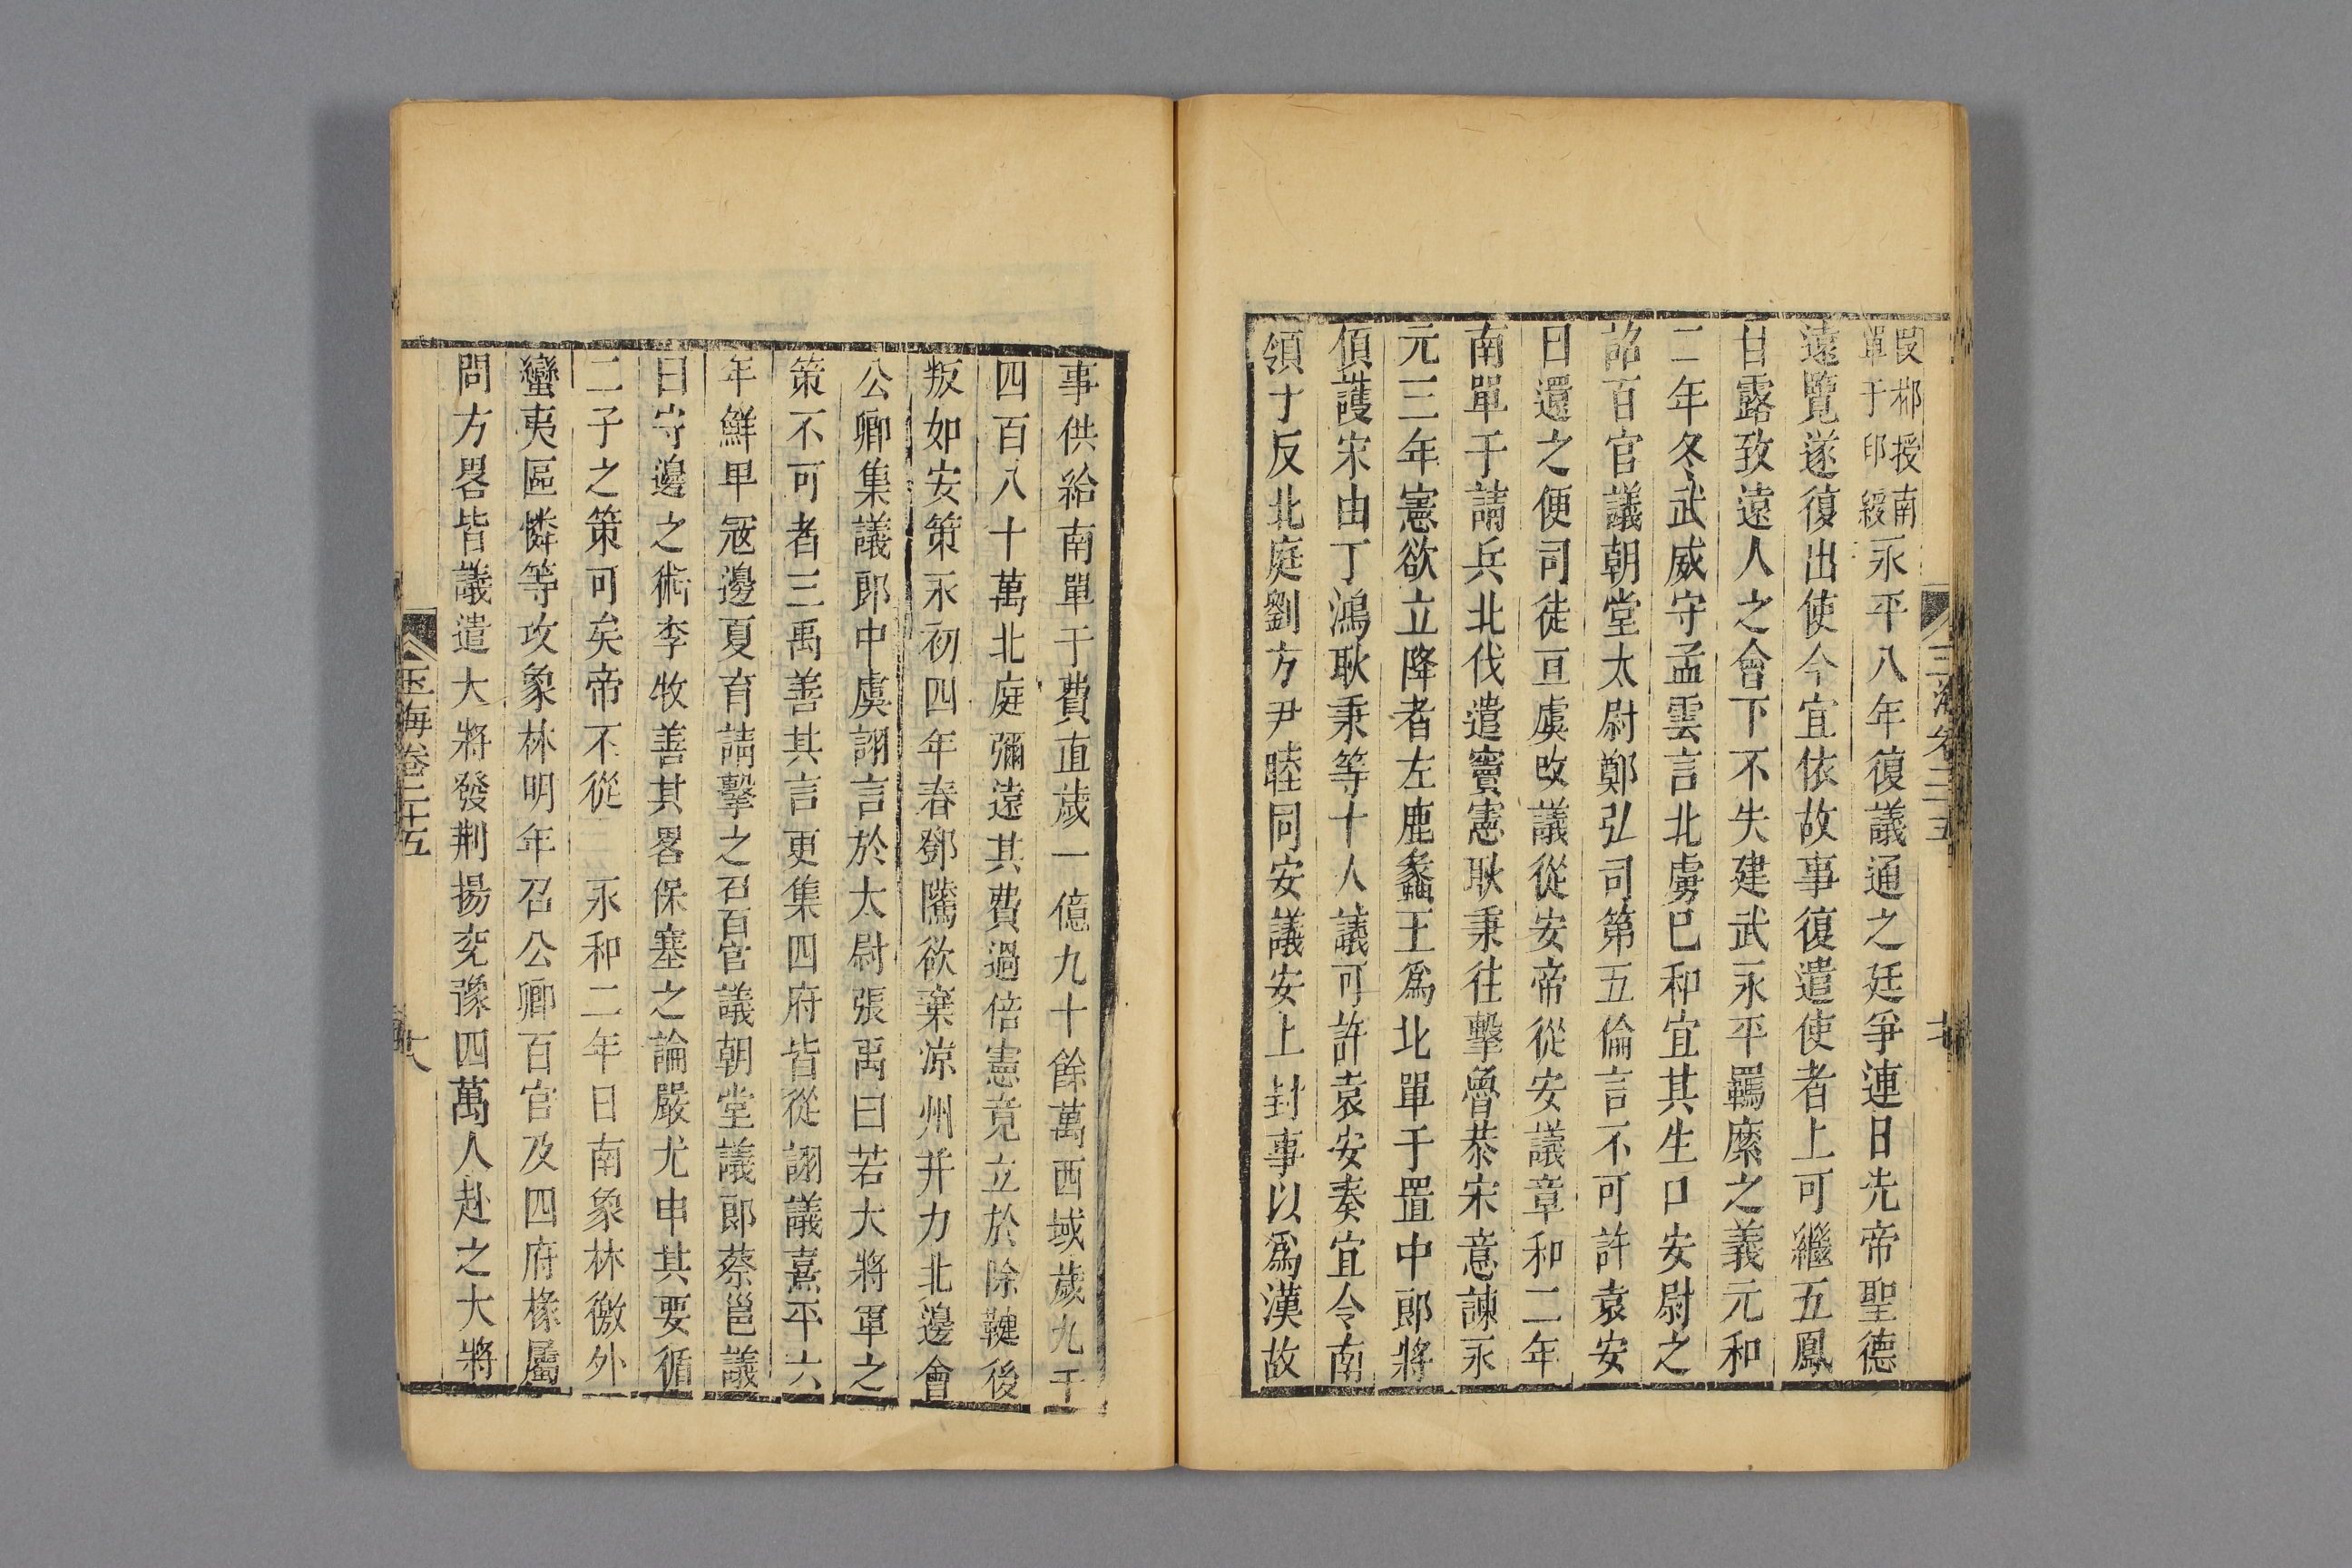 段郴授南
單于印綬
永平八年復議通之廷爭連日先帝聖德
遠覽遂復出使今宜依故事復遣使者上可繼五鳳
甘露致遠人之會下不失建武永平羈縻之義元和
二年冬武威守孟雲言北虜巳和宜其生口安尉之
詔百官議朝堂太尉鄭弘司第五倫言不可許袁安
曰還之便司徒亘虞改議從安帝從安議章和二年
南單于請兵北伐遣竇憲耿秉往擊魯恭宋意諫永
元三年憲欲立降者左鹿蠡王爲北單于置中郎將
傎護宋由丁鴻耿秉等十人議可許袁安奏宜令南
領于反北庭劉方尹睦同安議安上封事以爲漢故
事供給南單于費直歲一億九十餘萬西域歲九千
四百八十萬北庭彌遠其費過倍憲竟立於除鞬後
叛如安策永初四年春鄧隲欲棄涼州并力北邊會
公卿集議郎中虞詡言於太尉張禹曰若大將軍之
策不可者三禹善其言更集四府皆從詡議熹平六
年鮮卑冦邊夏育請擊之召百官議朝堂議郎蔡邕議
曰守邊之術李牧善其畧保塞之論嚴尤申其要循
二子之策可矣帝不從 永和二年日南象林徼外
蠻夷區憐等攻象林明年召公卿百官及四府椽屬
問方畧皆議遣大將發荆揚兖豫四萬人赴之大將
玉海卷二十五
十八